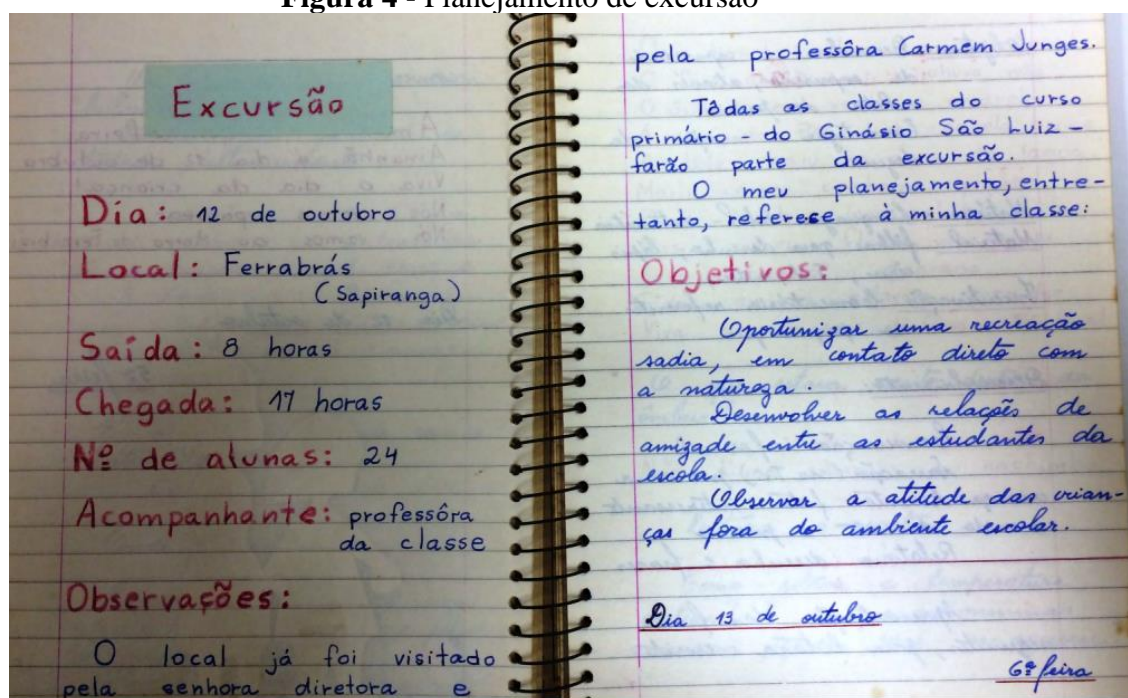 Figura 4 - Planejamento de excursão
Excursão
Dia: 12 de outubro
Local: Ferrabrás
(Sapiranga)
Saída: 8 horas
Chegada: 17 horas
Nº de alunas: 24
Acompanhante: professôra
da classe
Observações:
O local já foi visitado
pela senhora diretora e
pela professôra Carmem Junges.
Tôdas as classes do curso
primário - do Ginásio São Luiz -
farão parte da excursão.
O meu planejamento, entre-
tanto, referese à minha classe:
Objetivos:
Oportunizar uma recreação
sadia, em contato direto com
a natureza.
Desenvolver as relações de
amizade entre as estudantes da
escola.
Observar a atitude das crian-
ças fora do ambiente escolar.
Dia 13 de outubro
6ª feira